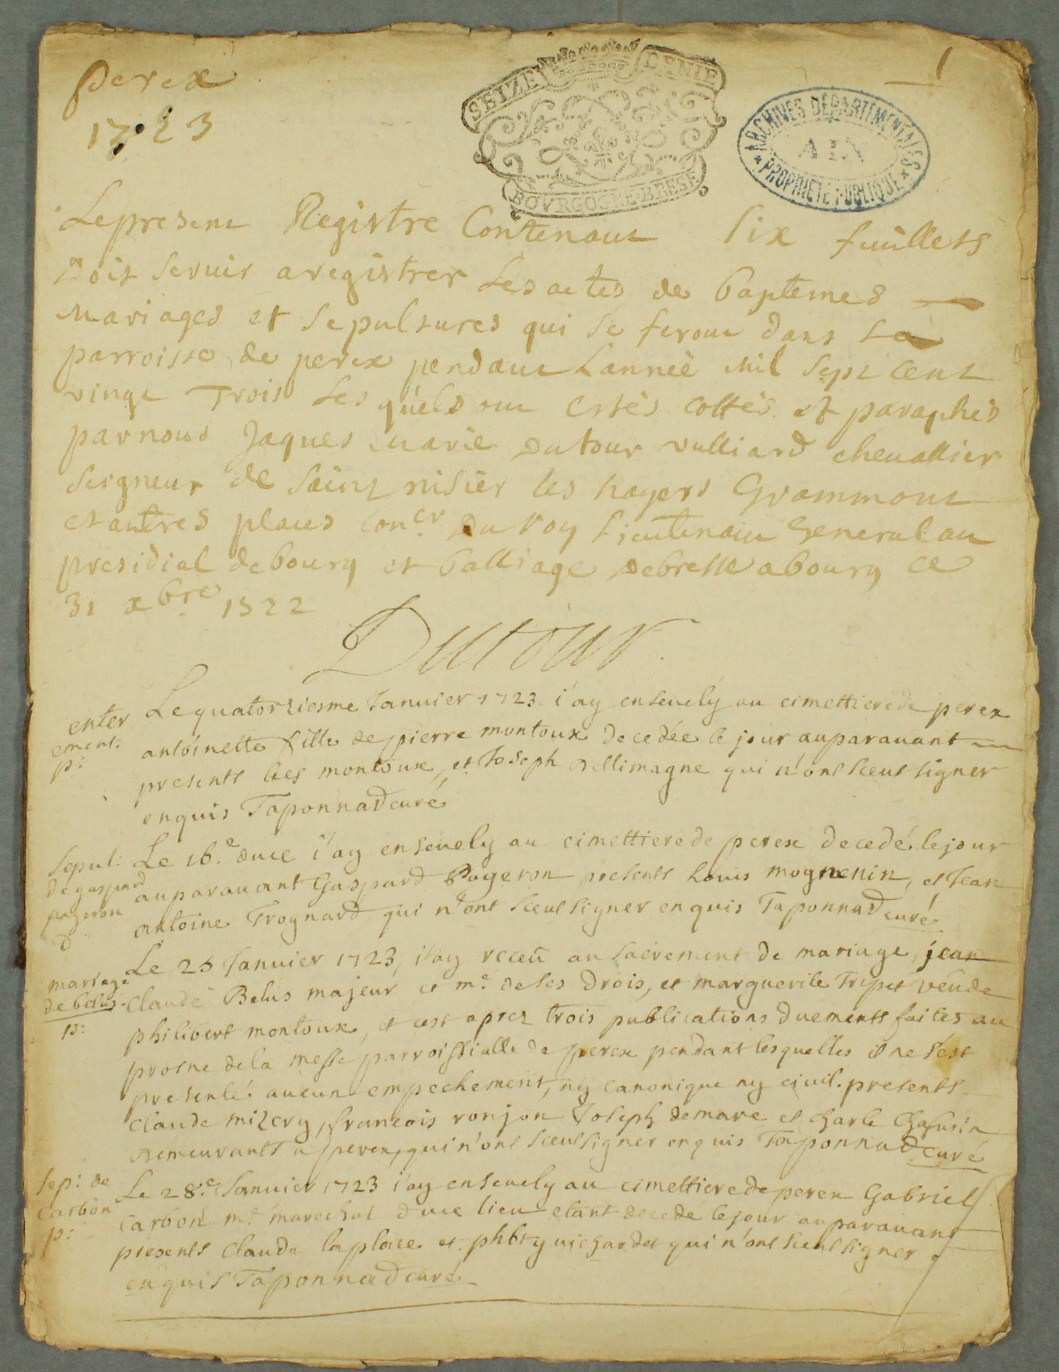 perex
1723
1
SEIZE DENIE
BOVRGOGNE BRESE
ARCHIVES DEPARTEMENTALES
AIN
PROPRIETE PUBLIQUE
Le present Registre Contenant six feuillets
doit servir a registrer Les actes de baptemes
mariages et sepultures qui se feront dans La
parroisse de perex pendant Lannée mil sept cent
vingt Trois Les quels ont estés cottés et paraphés
par nous Jaques marie Dutour vulliard chevallier
seigneur de saint nisier les hayers Grammont
et autres places Con.er Du roy Lieutenant General au
presidial de bourg et balliage de bresse a bourg ce
31 xbre 1522
Dutour
enter
ement:
p:
Le quatorziesme Janvier 1723 i'ay ensevely au cimettiere de perex
antoinette fille de pierre montoux decedée le jour auparavant
presents les montoux et Joseph allimagne qui n'ont sceut signer
enquis Taponnad curé
sepul:
de gaspard
pageron
Le 16.e duce i'ay ensevely au cimettiere de perex decedé le jour
auparavant Gaspard Pageron presents Louis mognenin, et Jean
antoine Trognard qui n'ont sceut signer enquis Taponnad curé
mariage
de belus
p:
Le 25 Janvier 1723, i'ay receu au sacrement de mariage, jean
claude Belus majeur et m.e de ses drois, et marguerite Tripet veuve
philibert montoux, et cest aprez trois publications duements faites au
prosne de la messe parroissialle de perex pendant lesquelles il ne s'est
presenté aucun empechement, ny canonique ny civil. presents
claude mizery, francois ronjon Joseph demare et charle
demeurants a perex, qui n'ont sceut signer enquis Taponnad curé
sep: de
Carbon
p:
Le 28.e Janvier 1723 i'ay ensevely au cimettiere de perex Gabriel
Carbon m.e marechal duce lieu etant decede le jour auparavant
presents claude laplace et phbt guichardet qui n'ont sceut signer
enquis Taponnad curé